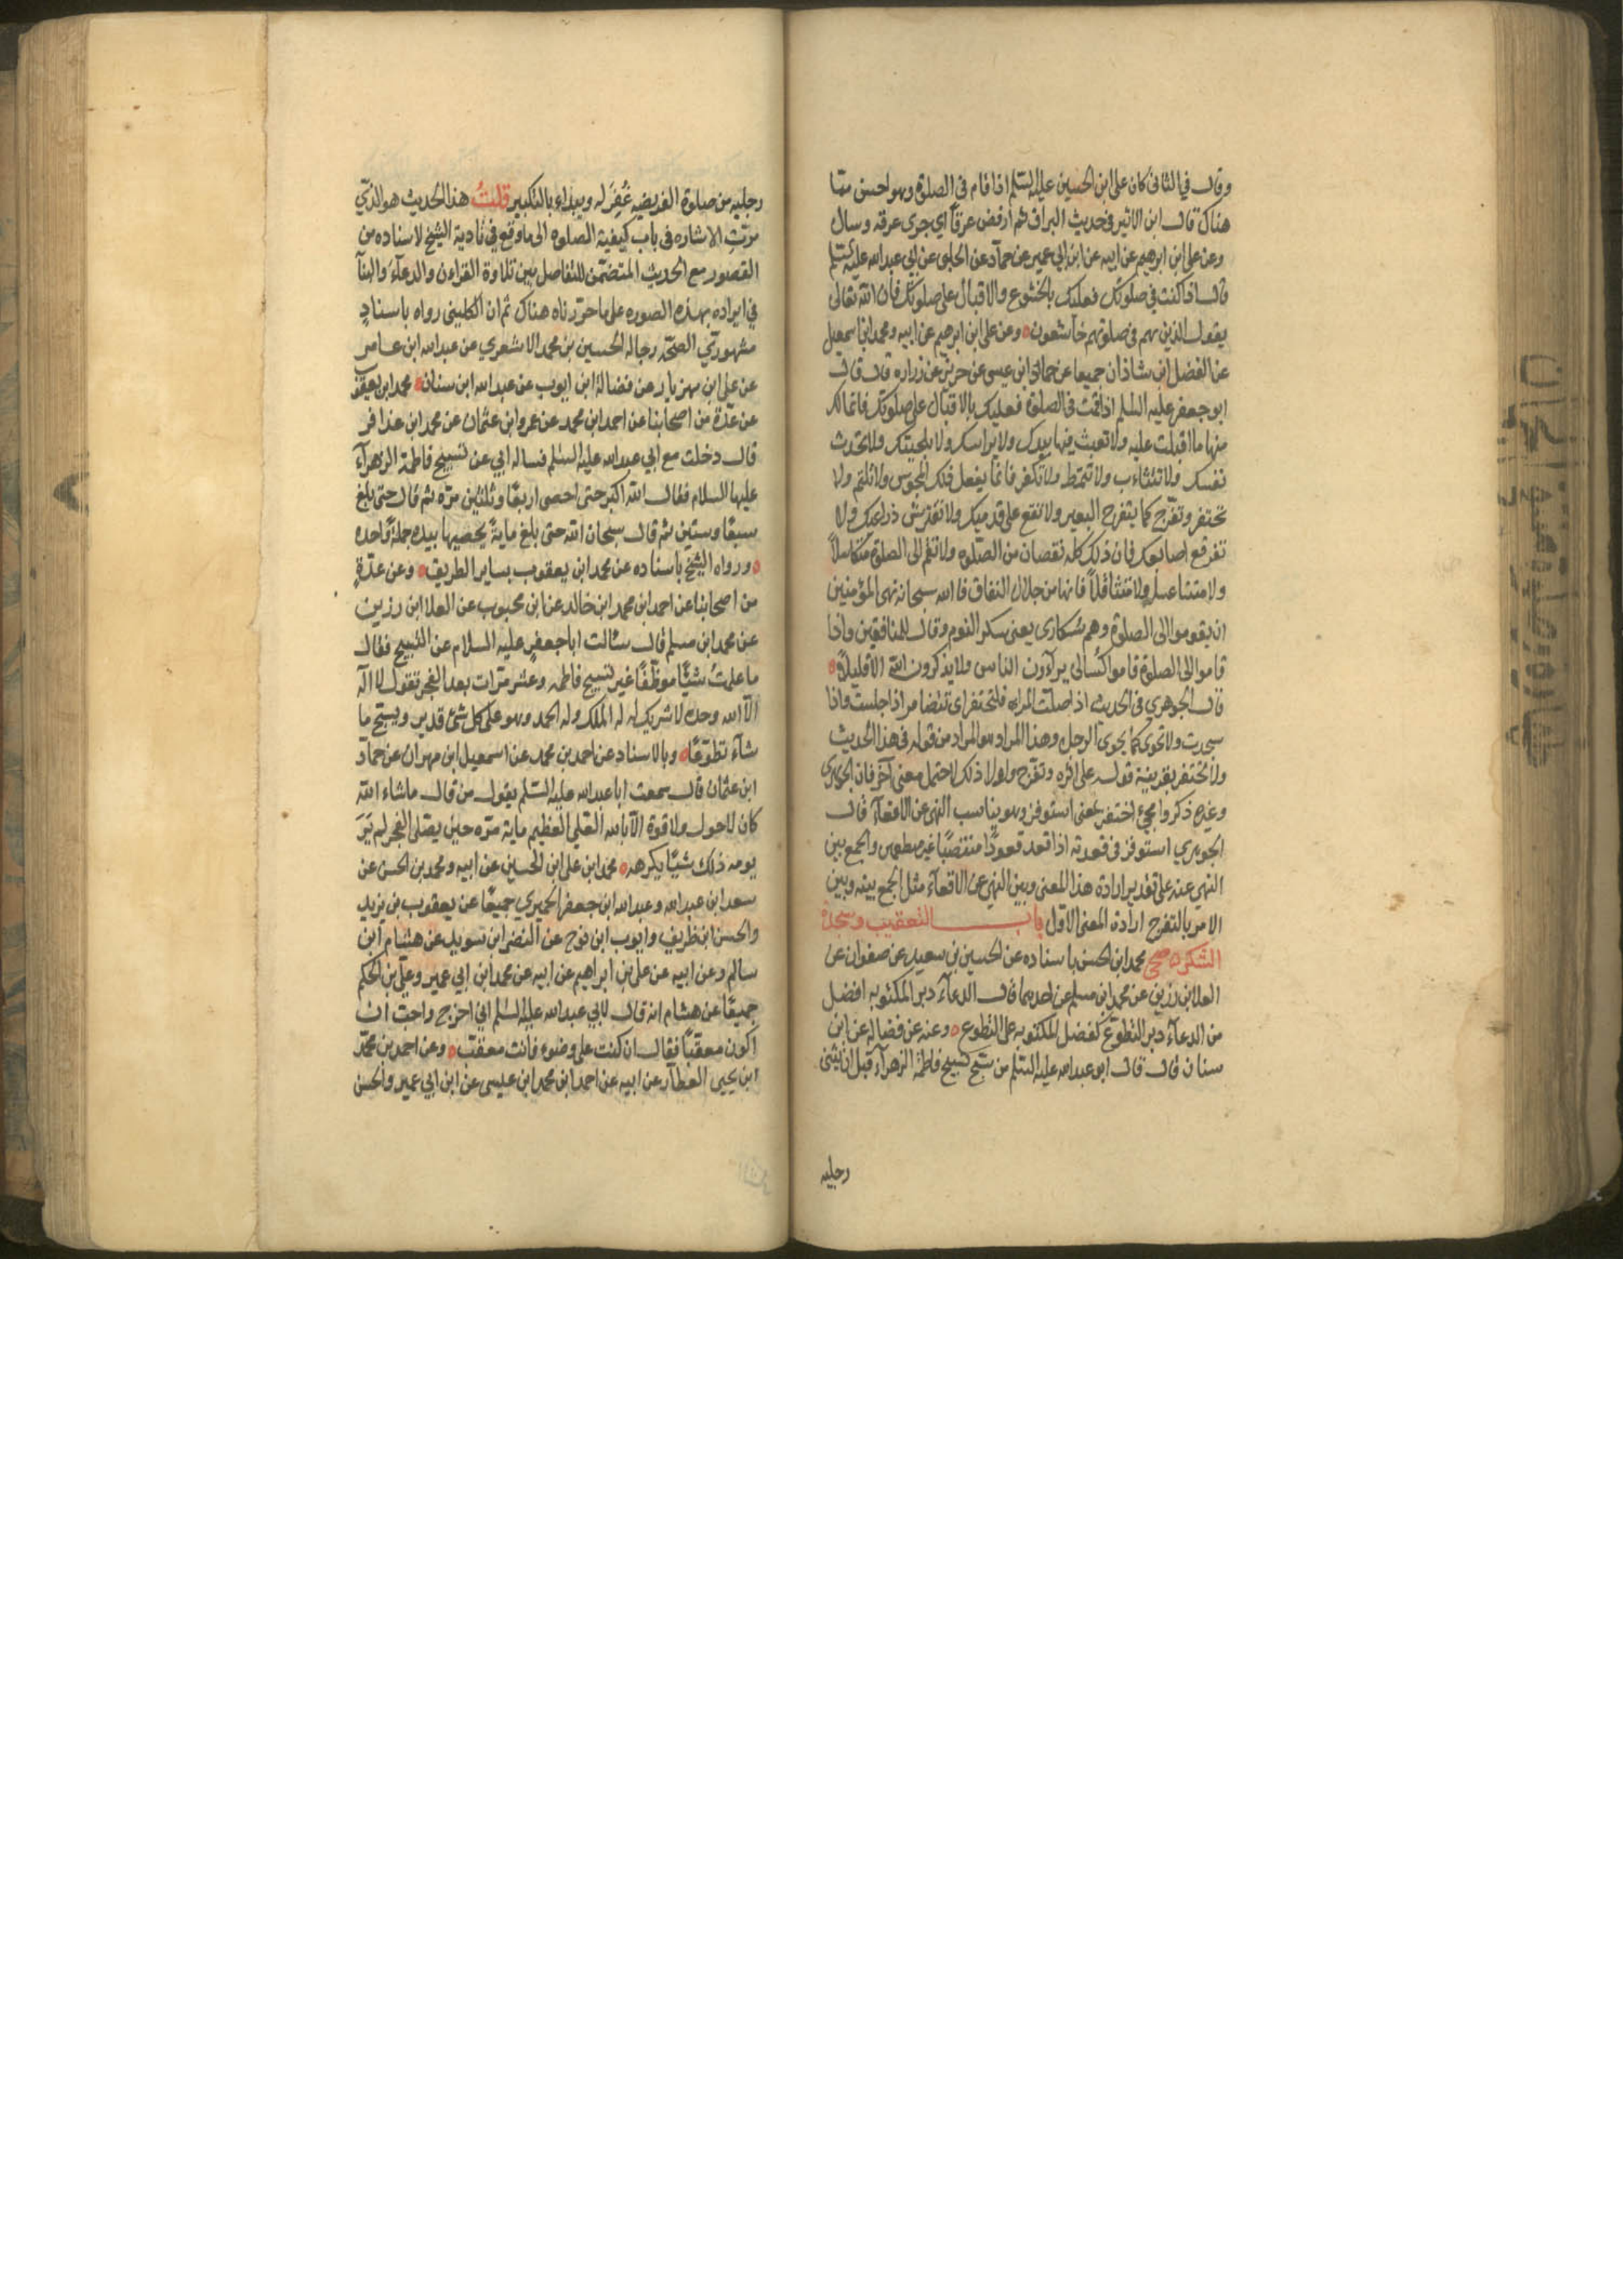 وقال في الثاني كان علي ابن الحسين عليه السلم اذا قام في الصلوة وهو احسن مما
هناك قال ابن الاثير في حديث البراق ثم ارفض عرقًا اي جرى عرقه وسال
وعن علي ابن ابرهيم عن ابيه عن ابن ابي عمير عن حماد عن الحلبي عن ابي عبد الله عليه السلم
قال اذا كنت في صلوتك فعليك بالخشوع والاقبال على صلوتك فان الله تعالى
يقول الذين هم في صلوتهم خاشعون وعن علي ابن ابرهيم عن ابيه ومحمد ابن اسمعيل
عن الفضل ابن شاذان جميعا عن حماد ابن عيسى عن حريز عن زرارة قال قال
ابو جعفر عليه السلم اذا قمت في الصلوة فعليك بالاقبال على صلوتك فانما لك
منها ما اقبلت عليه ولا تعبث فيها بيدك ولا براسك ولا بلحيتك ولا تحدث
نفسك ولا تتثاءب ولا تتمط ولا تكفر فانما يفعل ذلك المجوس ولا تلثم ولا
تحتفز وتفرج كما يتفرج البعير ولا تقع على قدميك ولا تفترش ذراعيك ولا
تفرقع اصابعك فان ذلك كله نقصان من الصلوه ولا تقم الى الصلوة متكاسلاً
ولا متناعسًا ولا متثاقلاً فانها من خلال النفاق فان الله سبحانه نهى المؤمنين
ان يقوموا الى الصلوة وهم سُكارى يعني سكر النوم وقال للمنافقين واذا
قاموا الى الصلوة قاموا كُسالى يراءون الناس ولا يذكرون الله الا قليلاً
قال الجوهري في الحديث اذا صلت المراة فلتحتفز اي تتضام اذا جلست واذا
سجدت ولا تخوي كما يخوي الرجل وهذا المراد هو المراد من قوله في هذا الحديث
ولا تحتفز بقرينة قوله على اثره وتفرج ولولا ذلك لاحتمل معنى آخر فان الجوهري
وغيره ذكروا مجئ احتفز بمعنى استوفز وهو يناسب النهي عن الاقعاء قال
الجوهري استوفز في قعدته اذا قعد قعودًا منتصبًا غير مطمئن والجمع بين
النهي عنه على تقدير ارادة هذا المعنى وبين النهي عن الاقعاء مثل الجمع بينه وبين
الامر بالتفرج ارادة المعنى الاول باب التعقيب وسجدة
الشكر صحي محمد ابن الحسن باسناده عن الحسين بن سعيد عن صفوان عن
العلا بن رزين عن محمد ابن مسلم عن احدهما قال الدعاء دبر المكتوبه افضل
من الدعاء دبر التطوع كفضل المكتوبه على التطوع وعنه عن فضاله عن ابن
سنان قال قال ابو عبد الله عليه السلم من سبح تسبيح فاطمة الزهراء قبل ان يثني
رجليه
رجليه من صلوة الفريضه غُفِرَ له ويبداء بالتكبير قلتُ هذا الحديث هو الذي
مرّتِ الاشاره في باب كيفية الصلوه الى ما وقع في تادية الشيخ لاسناده من
القصور مع الحديث المتضمّن للتفاضل بين تلاوة القراءن والدعاء والبنآ
في ايراده بهذه الصوره على ما حررناه هناك ثم ان الكليني رواه باسنادٍ
مشهوريّ الصحّه رجاله الحسين بن محمد الاشعري عن عبد الله ابن عامر
عن علي ابن مهزيار عن فضالة ابن ايوب عن عبد الله ابن سنان محمد ابن يعقوب
عن عدّة من اصحابنا عن احمد ابن محمد عن عمرو ابن عثمان عن محمد ابن عذافر
قال دخلت مع ابي عبد الله عليه السلم فساله ابي عن تسبيح فاطمة الزهرآء
عليها السلام فقال الله اكبر حتى احصى اربعًا وثلثين مرّه ثم قال حتى بلغ
سبعًا وستين ثم قال سبحان الله حتى بلغ مايةً يحصيها بيده جملةً واحده
ورواه الشيخ باسناده عن محمد ابن يعقوب بساير الطريق وعن عدّةٍ
من اصحابنا عن احمد ابن محمد ابن خالد عن ابن محبوب عن العلا ابن رزين
عن محمد ابن مسلم قال سألت ابا جعفرٍ عليه السلام عن التسبيح فقال
ما علمتُ شيئًا موظّفًا غير تسبيح فاطمه وعشر مرّات بعد الفجر تقول لا اله
الّا الله وحده لا شريك له له الملك وله الحمد وهو على كل شئ قدير ويسبح ما
شآء تطوّعًا وبالاسناد عن احمد بن محمد عن اسمعيل ابن مهران عن حمآد
ابن عثمان قال سمعت ابا عبد الله عليه السّلم يقول من قال ماشاء الله
كان لا حول ولا قوة الّا بالله العلي العظيم ماية مرّه حين يصلى الفجر لم يَرَ
يومه ذلك شيئًا يكرهه محمد ابن علي ابن الحسين عن ابيه ومحمد بن الحسن عن
سعد ابن عبد الله وعبد الله ابن جعفر الحميري جميعًا عن يعقوب بن يزيد
والحسن ابن ظريف وايوب ابن نوح عن النضر ابن سويد عن هشام ابن
سالم وعن ابيه عن علي بن ابراهيم عن ابيه عن محمد ابن ابي عمير وعلي بن الحكم
جميعًا عن هشام انه قال لابي عبد الله عليه السلم اني اخرج واحب ان
اكون معقبًا فقال ان كنت على وضوء فانت معقب وعن احمد بن محمّد
ابن يحيى العطآر عن ابيه عن احمد ابن محمد ابن عيسى عن ابن ابي عمير والحسن